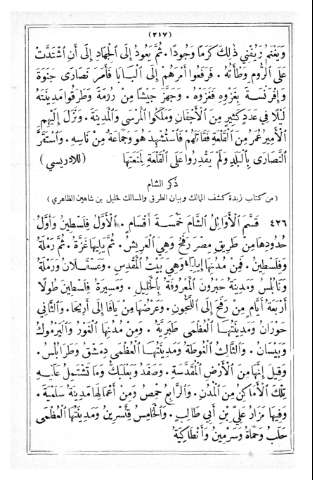 (٢١٧)
وَيَغْنَمُ وَيُثْنِي ذٰلِكَ كَرَمًا وَجُودًا. ثُمَّ يَعُودُ إِلَى الْجِهَادِ إِلَى أَنِ اشْتَدَّتْ
عَلَى الرُّومِ وَطْأَتُهُ. فَرَفَعُوا أَمْرَهُمْ إِلَى الْبَابَا فَأَمَرَ نَصَارَى جَنْوَةَ
وَإِفْرَنْسَةَ بِغَزْوِهِ فَغَزَوْهُ. وَجَهَّزَ جَيْشًا مِنْ رُومَةَ وَطَرَقُوا مَدِينَتَهُ
لَيْلًا فِي عَدَدٍ كَثِيرٍ مِنَ الْأَجْفَانِ وَمَلَكُوا الْمَرْسَى وَالْمَدِينَةَ. وَنَزَلَ إِلَيْهِمِ
الْأَمِيرُ عُمَرُ مِنَ الْقَلْعَةِ فَقَاتَلَهُمْ فَاسْتُشْهِدَ هُوَ وَجَمَاعَةٌ مِنْ نَاسِهِ. وَاسْتَقَرَّ
النَّصَارَى بِالْبَلَدِ وَلَمْ يَقْدِرُوا عَلَى الْقَلْعَةِ لِمَنَعَتِهَا (للادريسي)
ذكر الشام
(من كتاب زبدة كشف الممالك وبيان الطرق والمسالك لخليل بن شاهين الظاهري)
٤٢٦ قَسَمَ الْأَوَائِلُ الشَّامَ خَمْسَةَ أَقْسَامٍ. الْأَوَّلُ فِلَسْطِينُ وَأَوَّلُ
حُدُودِهَا مِنْ طَرِيقِ مِصْرَ رَفَحُ وَهِيَ الْعَرِيشُ. ثُمَّ يَلِيهَا غَزَّةُ. ثُمَّ رَمْلَةُ
وَفِلَسْطِينُ. فَمِنْ مُدُنِهَا إِيلِيَاءُ وَهِيَ بَيْتُ الْمَقْدِسِ. وَعَسْقَلَانُ وَرَمْلَةُ
وَنَابُلُسُ وَمَدِينَةُ حَبْرُونَ الْمَعْرُوفَةُ بِالْخَلِيلِ. وَمَسِيرَةُ فِلَسْطِينَ طُولًا
أَرْبَعَةُ أَيَّامٍ مِنْ رَفَحَ إِلَى اللَّجُّونِ. وَعَرْضُهَا مِنْ يَافَا إِلَى أَرِيحَا. وَالثَّانِي
حَوْرَانُ وَمَدِينَتُهَا الْعُظْمَى طَبَرِيَّةُ. وَمِنْ مُدُنِهَا الْغَوْرُ وَالْيَرْمُوكُ
وَبَيْسَانُ. وَالثَّالِثُ الْغُوطَةُ وَمَدِينَتُهَا الْعُظْمَى دِمَشْقُ وَطَرَابُلُسُ.
وَقِيلَ إِنَّهَا مِنَ الْأَرْضِ الْمُقَدَّسَةِ. وَصَفَدُ وَبَعْلَبَكُّ وَمَا تَشْتَمِلُ عَلَيْهِ
تِلْكَ الْأَمَاكِنُ مِنَ الْمُدُنِ. وَالرَّابِعُ حِمْصُ وَمِنْ أَعْمَالِهَا مَدِينَةُ سَلَمِيَةَ.
وَفِيهَا مَزَارُ عَلِيِّ بْنِ أَبِي طَالِبٍ. وَالْخَامِسُ قِنَّسْرِينُ وَمَدِينَتُهَا الْعُظْمَى
حَلَبُ وَحَمَاةُ وَسَرْمِينُ وَأَنْطَاكِيَةُ